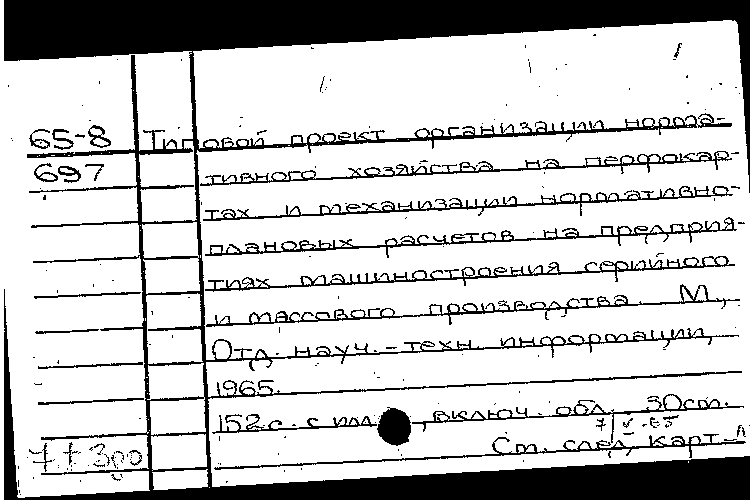 65-8 Типовой проект организации норма-
697 тивного хозяйства на перфокар-
тах и механизации нормативно-
плановых расчетов на предприя-
тиях машиностроения серийного
и массового производства. М.,
Отд. науч.-техн. информации,
1965.
152 с. с илл., включ. обл. 30 см.
См. след. карт.